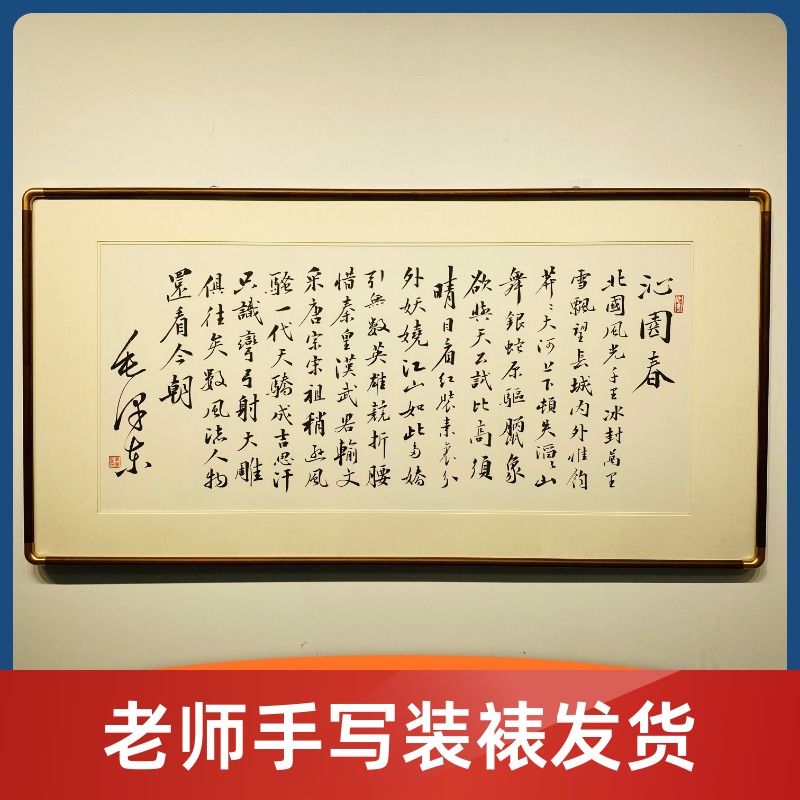 沁園春
北國風光千里冰封萬里
雪飄望長城內外惟餘
莽〻大河上下頓失滔〻山
舞銀蛇原驅臘象
欲與天公試比高須
晴日看紅裝素裹分
外妖嬈江山如此多嬌
引無數英雄競折腰
惜秦皇漢武畧輸文
采唐宗宋祖稍遜風
騷一代天驕成吉思汗
只識彎弓射大雕
俱往矣數風流人物
還看今朝
毛澤東
老师手写装裱发货